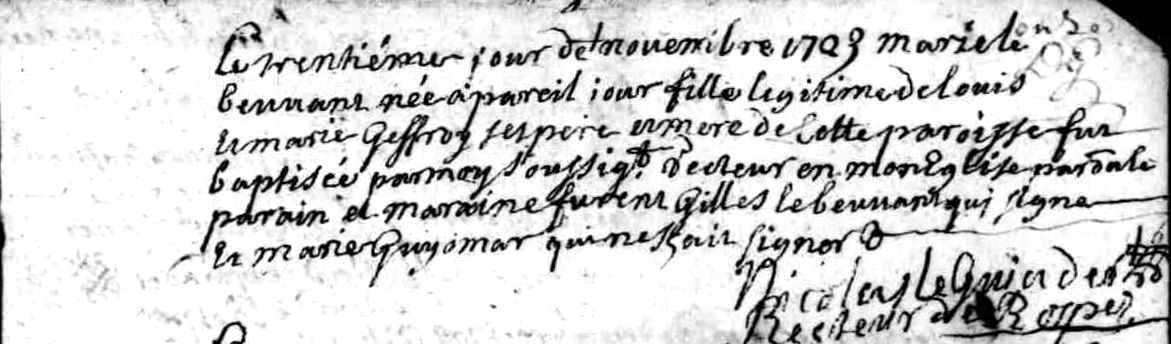 Le trentiéme jour de novembre 1723 marie le
beuvant née à pareil jour fille legitime de louis
et marie Geffroy ses pere et mere de cette paroisse fut
baptisée par moy soussig.t Recteur en mon Eglise par̃ale
parain et maraine furent Gilles le beuvant qui signe
et marie Guyomar qui ne sçait signer
Nicolas le Guiader
Recteur de Rospez